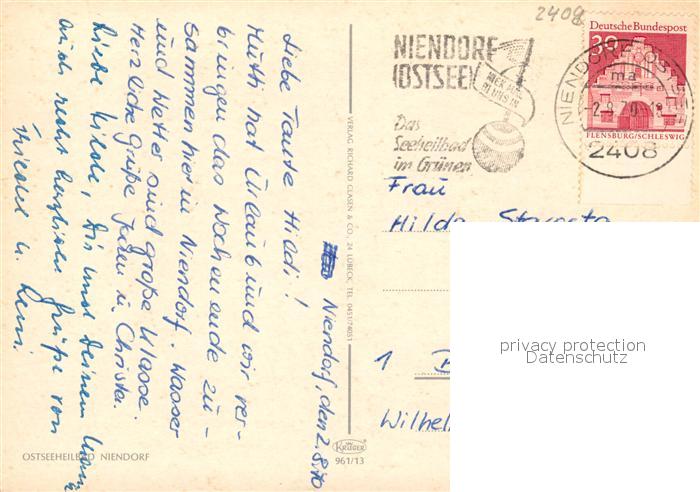 Niendorf, den 2.8.70
Liebe Tante Hildi!
Mutti hat Urlaub und wir ver-
bringen das Wochenende zu-
sammen hier in Niendorf. Wasser
und Wetter sind große Klasse.
Herzliche Grüße Jochen u. Christa.
Liebe Hilde, Dir und Deinem
auch recht herzliche Grüße von
u.
OSTSEEHEILBAD NIENDORF
VERLAG RICHARD CLASEN & CO., 24 LÜBECK, TEL. 0451/74051
KRÜGER
961/13
2408
NIENDORF
(OSTSEE)
Das
Seeheilbad
im Grünen
NIENDORF OSTSEE
ma
2.8.70
2408
Deutsche Bundespost
30
FLENSBURG/SCHLESWIG
Frau
Hilde
1
Wilhel
privacy protection
Datenschutz